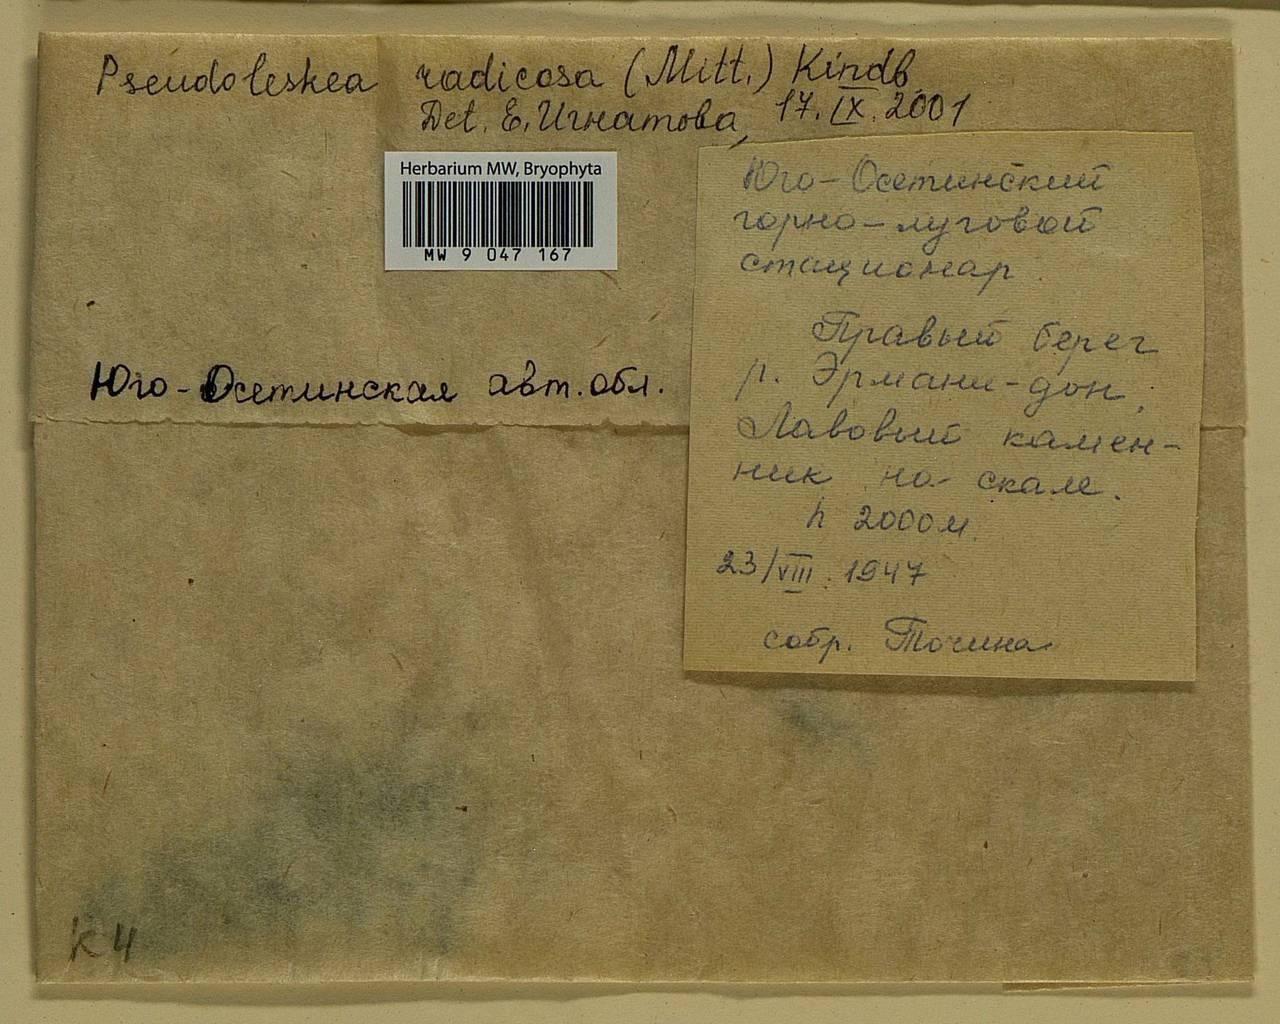 Pseudoleskea radicosa (Mitt.) Kindb.
Det. Е. Игнатова, 17.IX.2001
Herbarium MW, Bryophyta
MW 9 047 167
Юго-Осетинский
горно-луговой
стационар.
Правый берег
р. Эрмани-дон,
Лавовый камен-
ник на скале.
h 2000 м.
23/VIII. 1947
собр. Точина
Юго-Осетинская авт. обл.
К 4